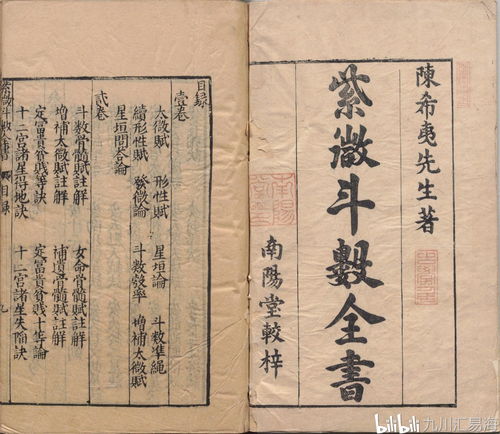 陳希夷先生著
紫微斗數全書
南陽堂較梓
目録
壹卷
太微賦 形性賦 星垣論 斗數準繩
續形性賦 發微論 斗數發率 增補太微賦
星垣問答論
貳卷
斗數骨髓賦註解 女命骨髓賦註解
增補太微賦註解 補遺骨髓賦註解
定富貴貧賤等訣 定富貴貧賤十等論
十二宮諸星得地訣 十二宮諸星失陷訣
紫微斗數全書 目録
bilibili 九川汇易海